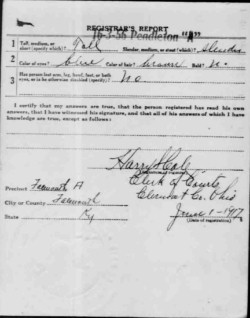 REGISTRAR'S REPORT
16-3-56 Pendleton "A"
1 Tall, medium, or short (specify which)? Tall Slender, medium, or stout (which)? Slender
2 Color of eyes? blue Color of hair? brown Bald? no
3 Has person lost arm, leg, hand, foot, or both eyes, or is he otherwise disabled (specify)? No
I certify that my answers are true, that the person registered has read his own answers, that I have witnessed his signature, and that all of his answers of which I have knowledge are true, except as follows:
Clerk of Courts
Precinct Falmouth A
Clermont Co. Ohio
City or County Falmouth
June 1-1917
State Ky
(Date of registration)